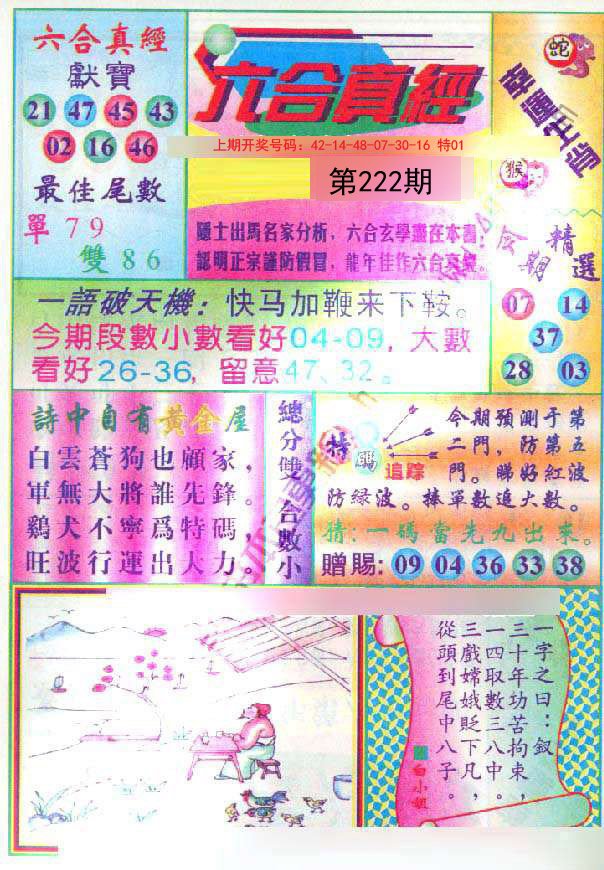 六合真經
獻寶
21 47 45 43
02 16 46
最佳尾數
單79
雙86
六合真經
上期开奖号码：42-14-48-07-30-16 特01
第222期
隱士出馬名家分析，六合玄學盡在本書；
認明正宗謹防假冒，龍年佳作六合真經。
蛇
猴
今期
精選
07 14
37
28 03
一語破天機：快马加鞭来下鞍。
今期段數小數看好04-09，大數
看好26-36，留意47、32。
詩中自有黃金屋
白雲蒼狗也顧家，
軍無大將誰先鋒。
鷄犬不寧爲特碼，
旺波行運出大力。
總分雙 合數小
特碼
追踪
今期預測于第
二門，防第五
門。睇好紅波
防绿波。捧單數追大數。
猜：一碼當先九出來。
贈賜：09 04 36 33 38
一字之曰：釵
三十年功苦拘束，
一四取數三八中。
三戲嫦娥貶下凡，
從頭到尾中八子。
白小姐